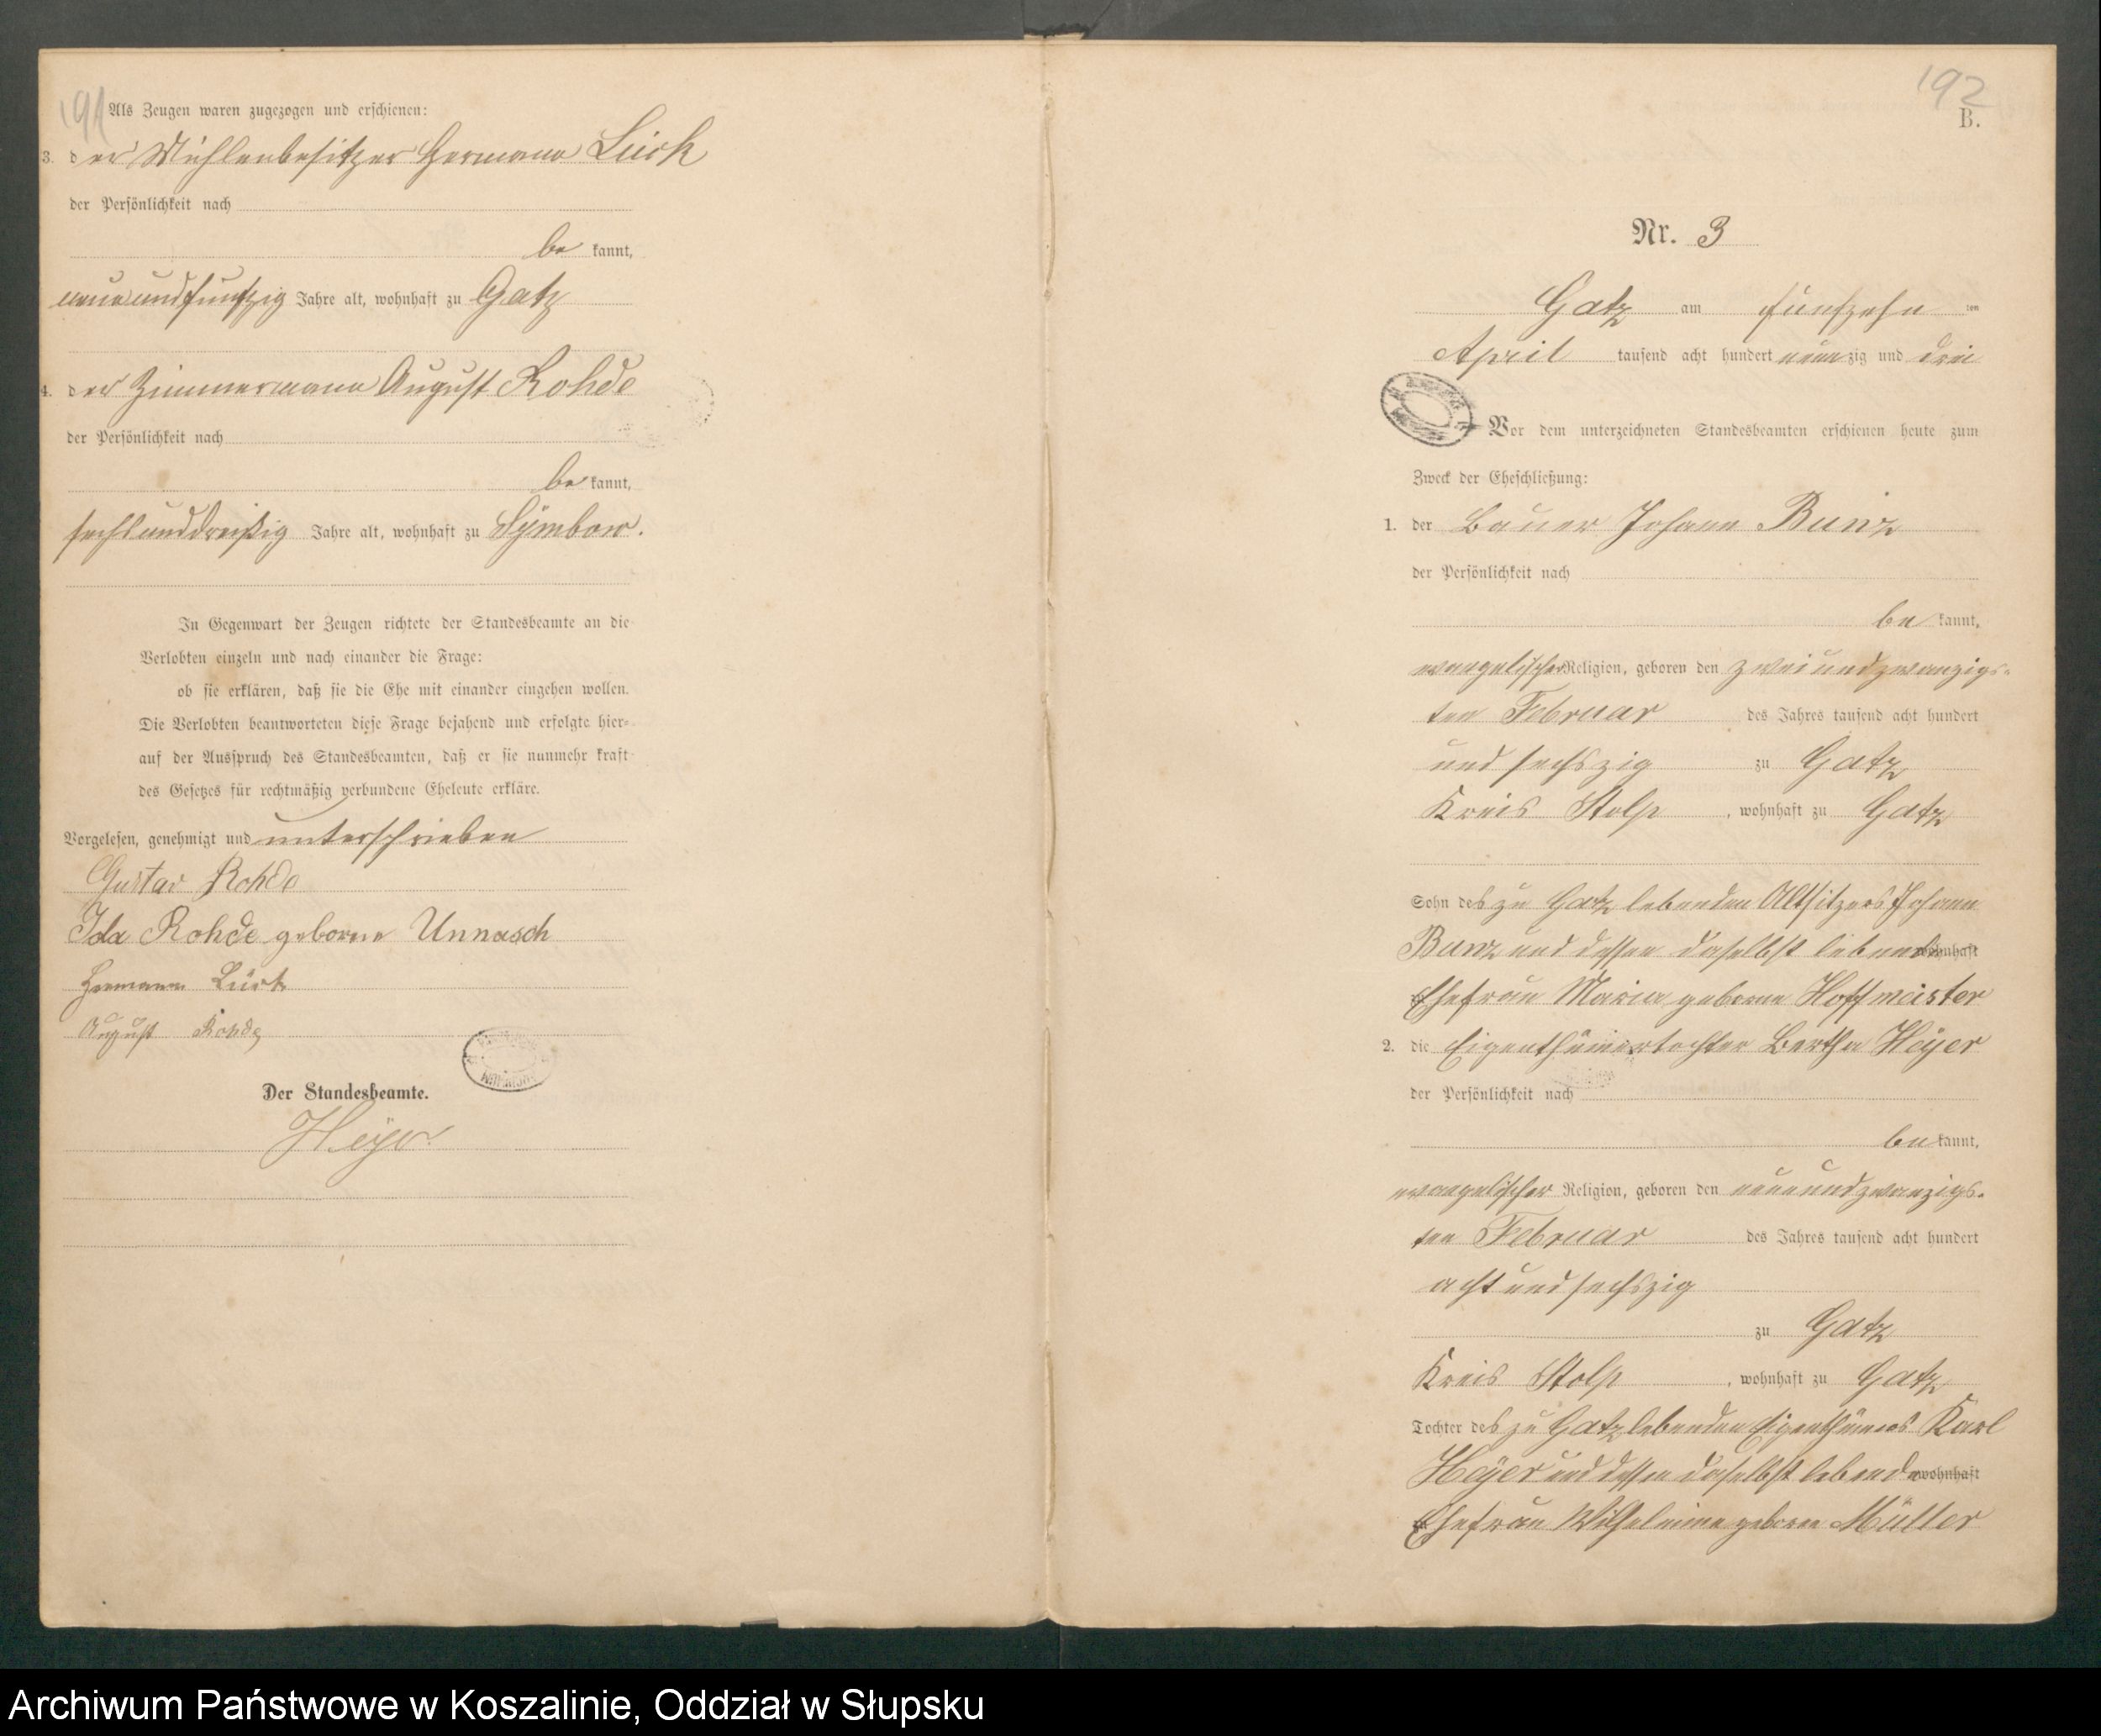 191
Als Zeugen waren zugezogen und erschienen:
3. der Mühlenbesitzer Hermann Lück
der Persönlichkeit nach
be kannt,
neunundfünfzig Jahre alt, wohnhaft zu Gatz
4. der Zimmermann August Rohde
der Persönlichkeit nach
be kannt,
sechsunddreißig Jahre alt, wohnhaft zu Symbow.
In Gegenwart der Zeugen richtete der Standesbeamte an die
Verlobten einzeln und nach einander die Frage:
ob sie erklären, daß sie die Ehe mit einander eingehen wollen.
Die Verlobten beantworteten diese Frage bejahend und erfolgte hier-
auf der Ausspruch des Standesbeamten, daß er sie nunmehr kraft
des Gesetzes für rechtmäßig verbundene Eheleute erkläre.
Vorgelesen, genehmigt und unterschrieben
Gustav Rohde
Ida Rohde geborene Unnasch
Hermann Lück
August Rohde
Der Standesbeamte.
Heyer
192
B.
Nr. 3
Gatz am fünfzehn ten
April tausend acht hundert neunzig und drei
Vor dem unterzeichneten Standesbeamten erschienen heute zum
Zweck der Eheschließung:
1. der Bauer Johann Bunz
der Persönlichkeit nach
be kannt,
evangelischer Religion, geboren den zweiundzwanzigs-
ten Februar des Jahres tausend acht hundert
und sechszig zu Gatz
Kreis Stolp, wohnhaft zu Gatz
Sohn des zu Gatz lebenden Altsitzers Johann
Bunz und dessen daselbst lebende wohnhaft
Ehefrau Maria geborene Hoffmeister
2. die Eigenthümertochter Bertha Heyer
der Persönlichkeit nach
be kannt,
evangelischer Religion, geboren den neunundzwanzigs-
ten Februar des Jahres tausend acht hundert
acht und sechszig
zu Gatz
Kreis Stolp, wohnhaft zu Gatz
Tochter des zu Gatz lebenden Eigenthümers Karl
Heyer und dessen daselbst lebende wohnhaft
Ehefrau Wilhelmine geborene Müller
Archiwum Państwowe w Koszalinie, Oddział w Słupsku